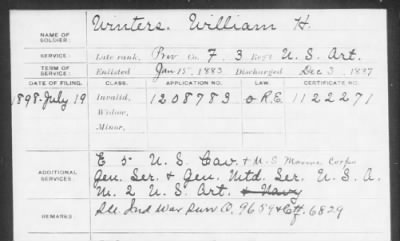 NAME OF SOLDIER: Winters, William H.
SERVICE: Late rank, Priv Co. F, 3 Reg't U. S. Art.
TERM OF SERVICE: Enlisted Jan 15, 1883 Discharged Dec 3, 1887
DATE OF FILING. CLASS. APPLICATION NO. LAW. CERTIFICATE NO.
1898-July 19 Invalid, 1208783 O.R.E. 1122271
Widow,
Minor,
E 5 U. S. Cav. & U.S. Marine Corps
ADDITIONAL SERVICES: Gen. Ser. & Gen. Mtd. Ser. U. S. A.
M. 2 U. S. Art. & Navy
REMARKS: Ind War Surv O. 9659 & Ctf. 6829